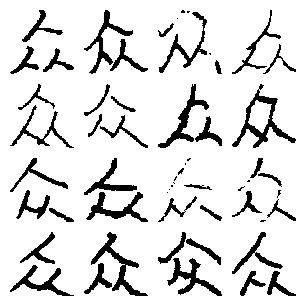 众众众众
众众众众
众众众众
众众众众